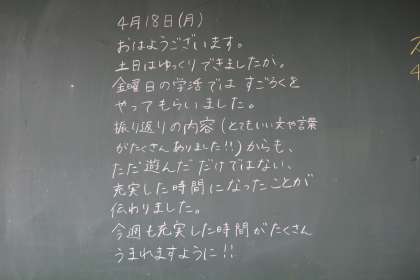 4月18日(月)
おはようございます。
土日はゆっくりできましたか。
金曜日の学活では すごろくを
やってもらいました。
振り返りの内容(とてもいい文や言葉
がたくさんありました!!)からも、
ただ遊んだだけではない、
充実した時間になったことが
伝わりました。
今週も充実した時間がたくさん
うまれますように!!